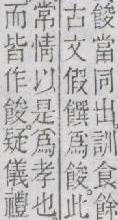 餕當同出訓食餘
古文假饌爲餕此
常情以是爲孝也
而皆作餕疑儀禮